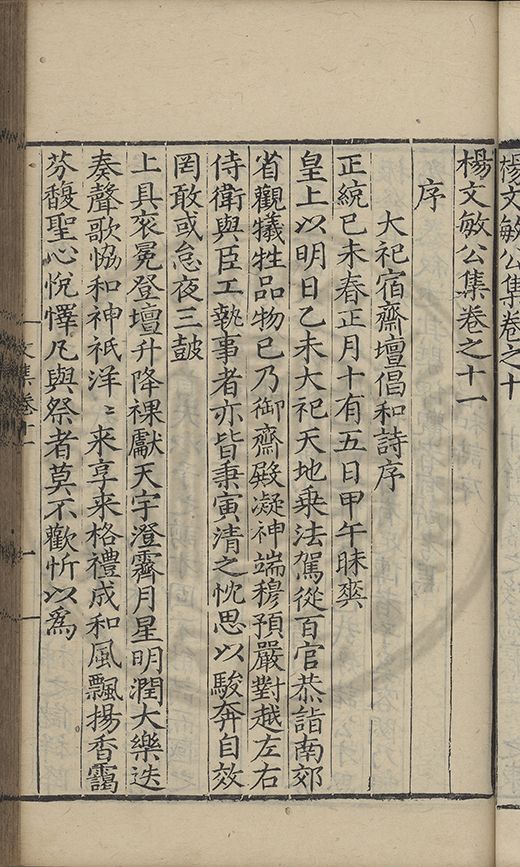 楊文敏公集卷之十
楊文敏公集卷之十一
序
大祀宿齋壇倡和詩序
正統已未春正月十有五日甲午昧爽
皇上以明日乙未大祀天地乗法駕從百官恭詣南郊
省觀犧牲品物已乃御齋殿凝神端穆預嚴對越左右
侍衛與臣工執事者亦皆秉寅清之忱思以駿奔自效
罔敢或怠夜三鼓
上具衮冕登壇升降祼獻天宇澄霽月星明潤大樂迭
奏聲歌恊和神祇洋〻来享来格禮成和風飄揚香靄
芬馥聖心悅懌凡與祭者莫不歡忻以為